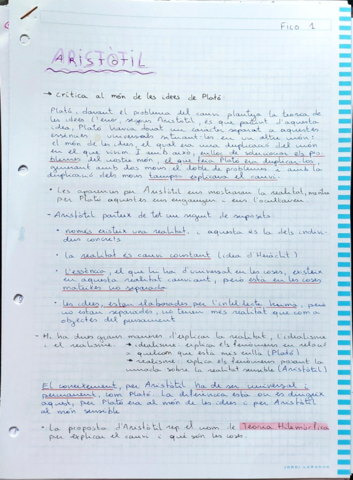 FICO 1
ARISTÒTIL
→ Crítica al món de les idees de Plató:
Plató, davant el problema del canvi planteja la teoria de
les idees. L'error, segons Aristòtil, és que partint d'aquesta
idea, Plató havia donat un caràcter separat a aquestes
essències universals situant-les en un altre món:
el món de les idees, el qual era una duplicació del món
en el que vivim. I amb això, enlloc de solucionar els pro-
blemes del nostre món, el que feia Plató era duplicar-los,
sumant amb dos mons el doble de problemes i amb la
duplicació dels mons tampoc explicava el canvi.
• Les aparences per Aristòtil ens mostraran la realitat, mentre
per Plató aquestes ens enganyen i ens l'oculten
- Aristòtil parteix de tot un seguit de suposats:
• només existeix una realitat: i aquesta és la dels indivi-
dus concrets
• la realitat és canvi constant (idea d'Heràclit)
• L'essència, el que hi ha d'universal en les coses, existeix
en aquesta realitat canviant, però està en les coses
mateixes no separada
• les idees, estan elaborades per l'intel·lecte humà, però
no estan separades, no tenen més realitat que com a
objectes del pensament
- Hi ha dues grans maneres d'explicar la realitat, l'idealisme
i el realisme: → idealisme: explica els fenòmens en relació
a quelcom que està més enllà (Plató)
→ realisme: explica els fenòmens posant la
mirada sobre la realitat sensible (Aristòtil)
El coneixement, per Aristòtil ha de ser universal i
permanent, com Plató. La diferència està on es dirigeix
aquest, per Plató era al món de les idees i per Aristòtil
al món sensible
• La proposta d'Aristòtil rep el nom de Teoria Hilemòrfica
per explicar el canvi i què són les coses.